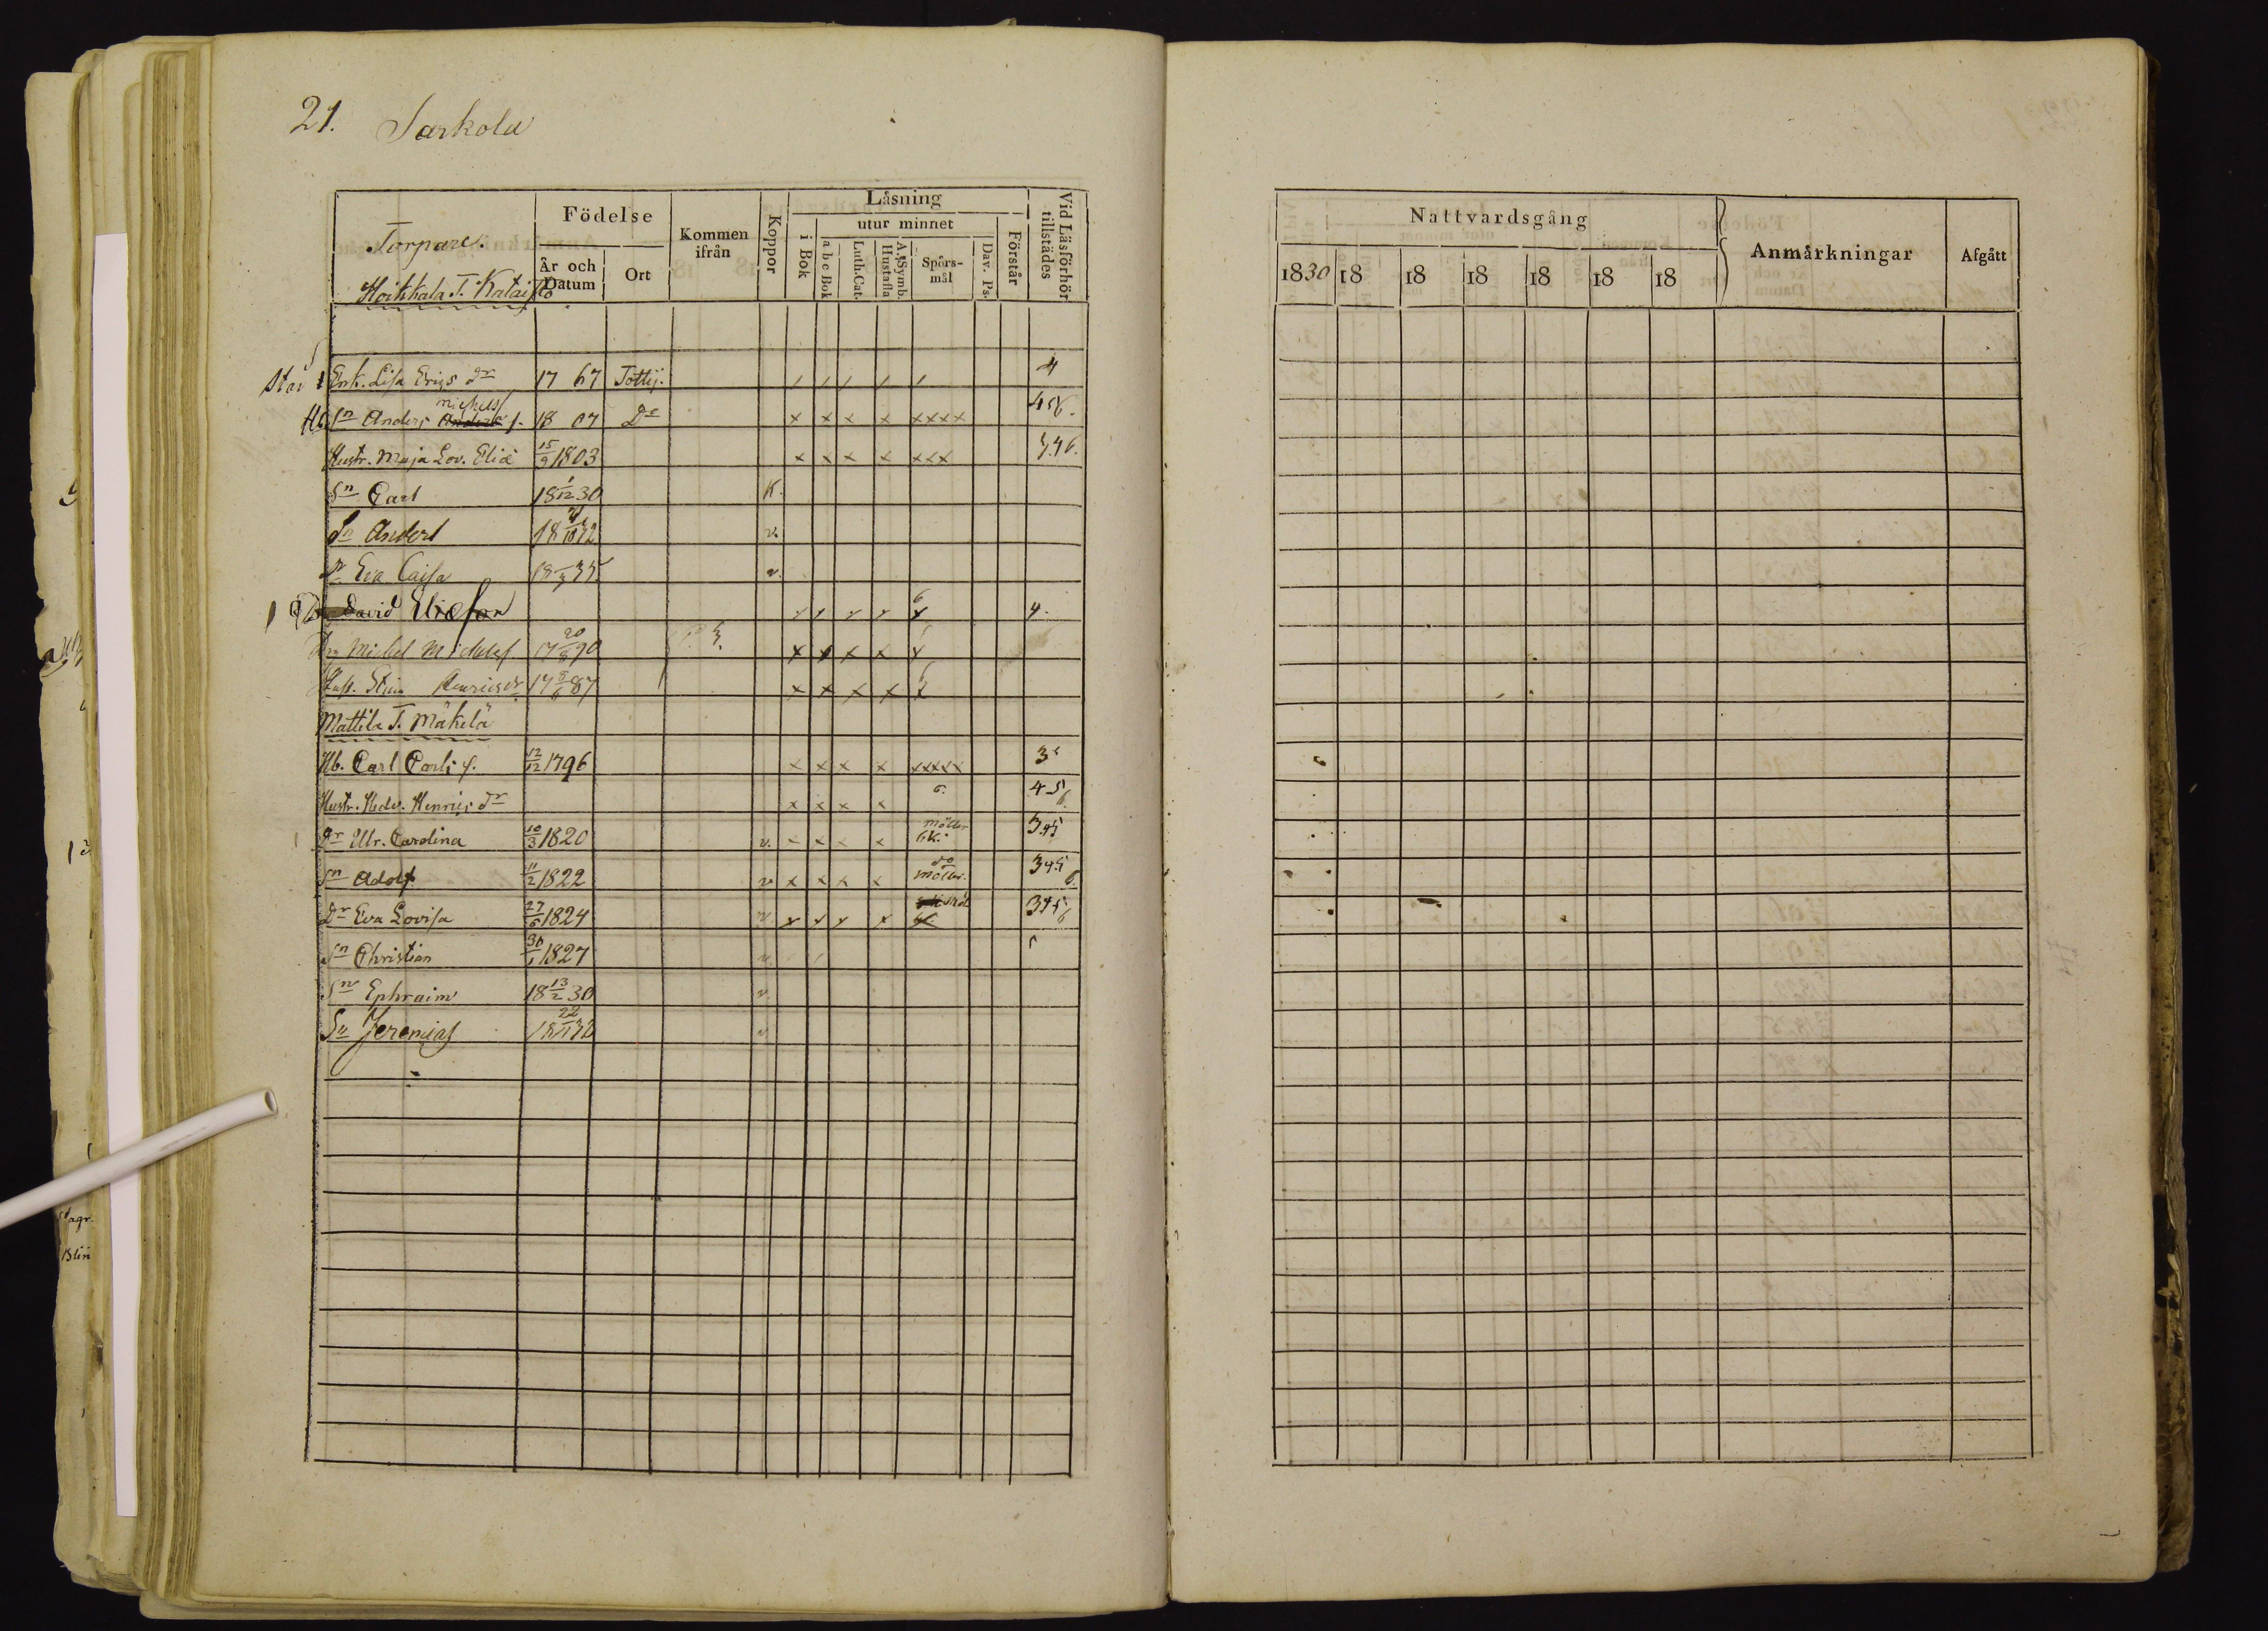 21. Sarkola
Torpare.
Hoikkala T. Kataisto
Födelse
År och Datum
Ort
Kommen ifrån
Koppor
Läsning
i Bok
utur minnet
a b c Bok
Luth. Cat.
A. Symb. Hustafla
Spörsmål
Dav. Ps.
Förstår
Vid Läsförhör tillstädes
Enk. Lisa Erics dr 17 67 Tottij. 4
Hb Sn Anders Michels Anders s. 18 07 Do x x x x xxxx 456.
Hustr. Maja Lov. Eliæ 15/9 1803 x x x x xxx 5.46.
Sn Carl 18 1/12 30 K.
Sn Anders v.
Dr Eva Caisa v.
David Eliæson 6 4.
Michel Michels. 17 20/8 90 x x x x x
Stina Henricsdr 17 87 x x x x x
Mattila T. Mäkelä
Hb. Carl Carls s. 12/12 1796 x x x x xxxxx 3
Hustr. Hedv. Henrics dr x x x x 6. 4 5 6
Dr Ulr. Carolina 10/3 1820 v. x x x x möller 6k. 345
Sn Adolf 11/2 1822 v x x x x do möller. 345 6.
Dr Eva Lovisa 27/6 1824 v. x x x x 345 6
Sn Christian 30/1 1827 v.
Sn Ephraim 18 13/2 30 v.
Sn Jeremias 18 22/11 32 v
Nattvardsgång
1830 18 18 18 18 18 18
Anmärkningar
Afgått